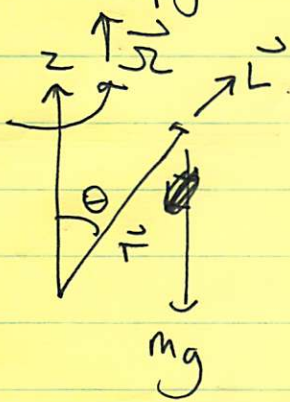 z Ω L
θ
r
mg